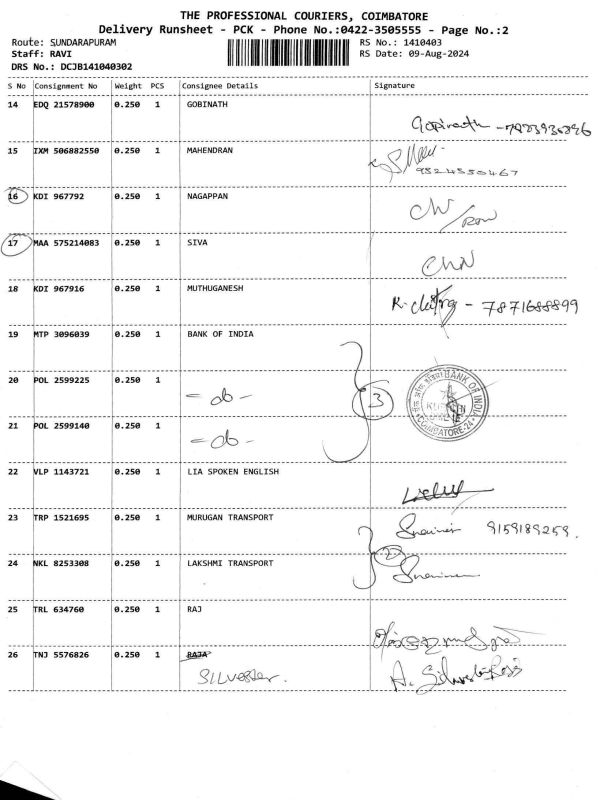 THE PROFESSIONAL COURIERS, COIMBATORE
Delivery Runsheet - PCK - Phone No.:0422-3505555 - Page No.:2
Route: SUNDARAPURAM RS No.: 1410403
Staff: RAVI RS Date: 09-Aug-2024
DRS No.: DCJB141040302
S No Consignment No Weight PCS Consignee Details Signature
14 EDQ 21578900 0.250 1 GOBINATH
Gopinath
15 IXM 506882550 0.250 1 MAHENDRAN
9524550467
16 KDI 967792 0.250 1 NAGAPPAN
17 MAA 575214083 0.250 1 SIVA
18 KDI 967916 0.250 1 MUTHUGANESH
- 7871688899
19 MTP 3096039 0.250 1 BANK OF INDIA
20 POL 2599225 0.250 1
- do -
3
BANK OF INDIA
COIMBATORE-24
21 POL 2599140 0.250 1
- do -
22 VLP 1143721 0.250 1 LIA SPOKEN ENGLISH
23 TRP 1521695 0.250 1 MURUGAN TRANSPORT
9159189259.
2
24 NKL 8253308 0.250 1 LAKSHMI TRANSPORT
25 TRL 634760 0.250 1 RAJ
26 TNJ 5576826 0.250 1 RAJA
SILVESTER.